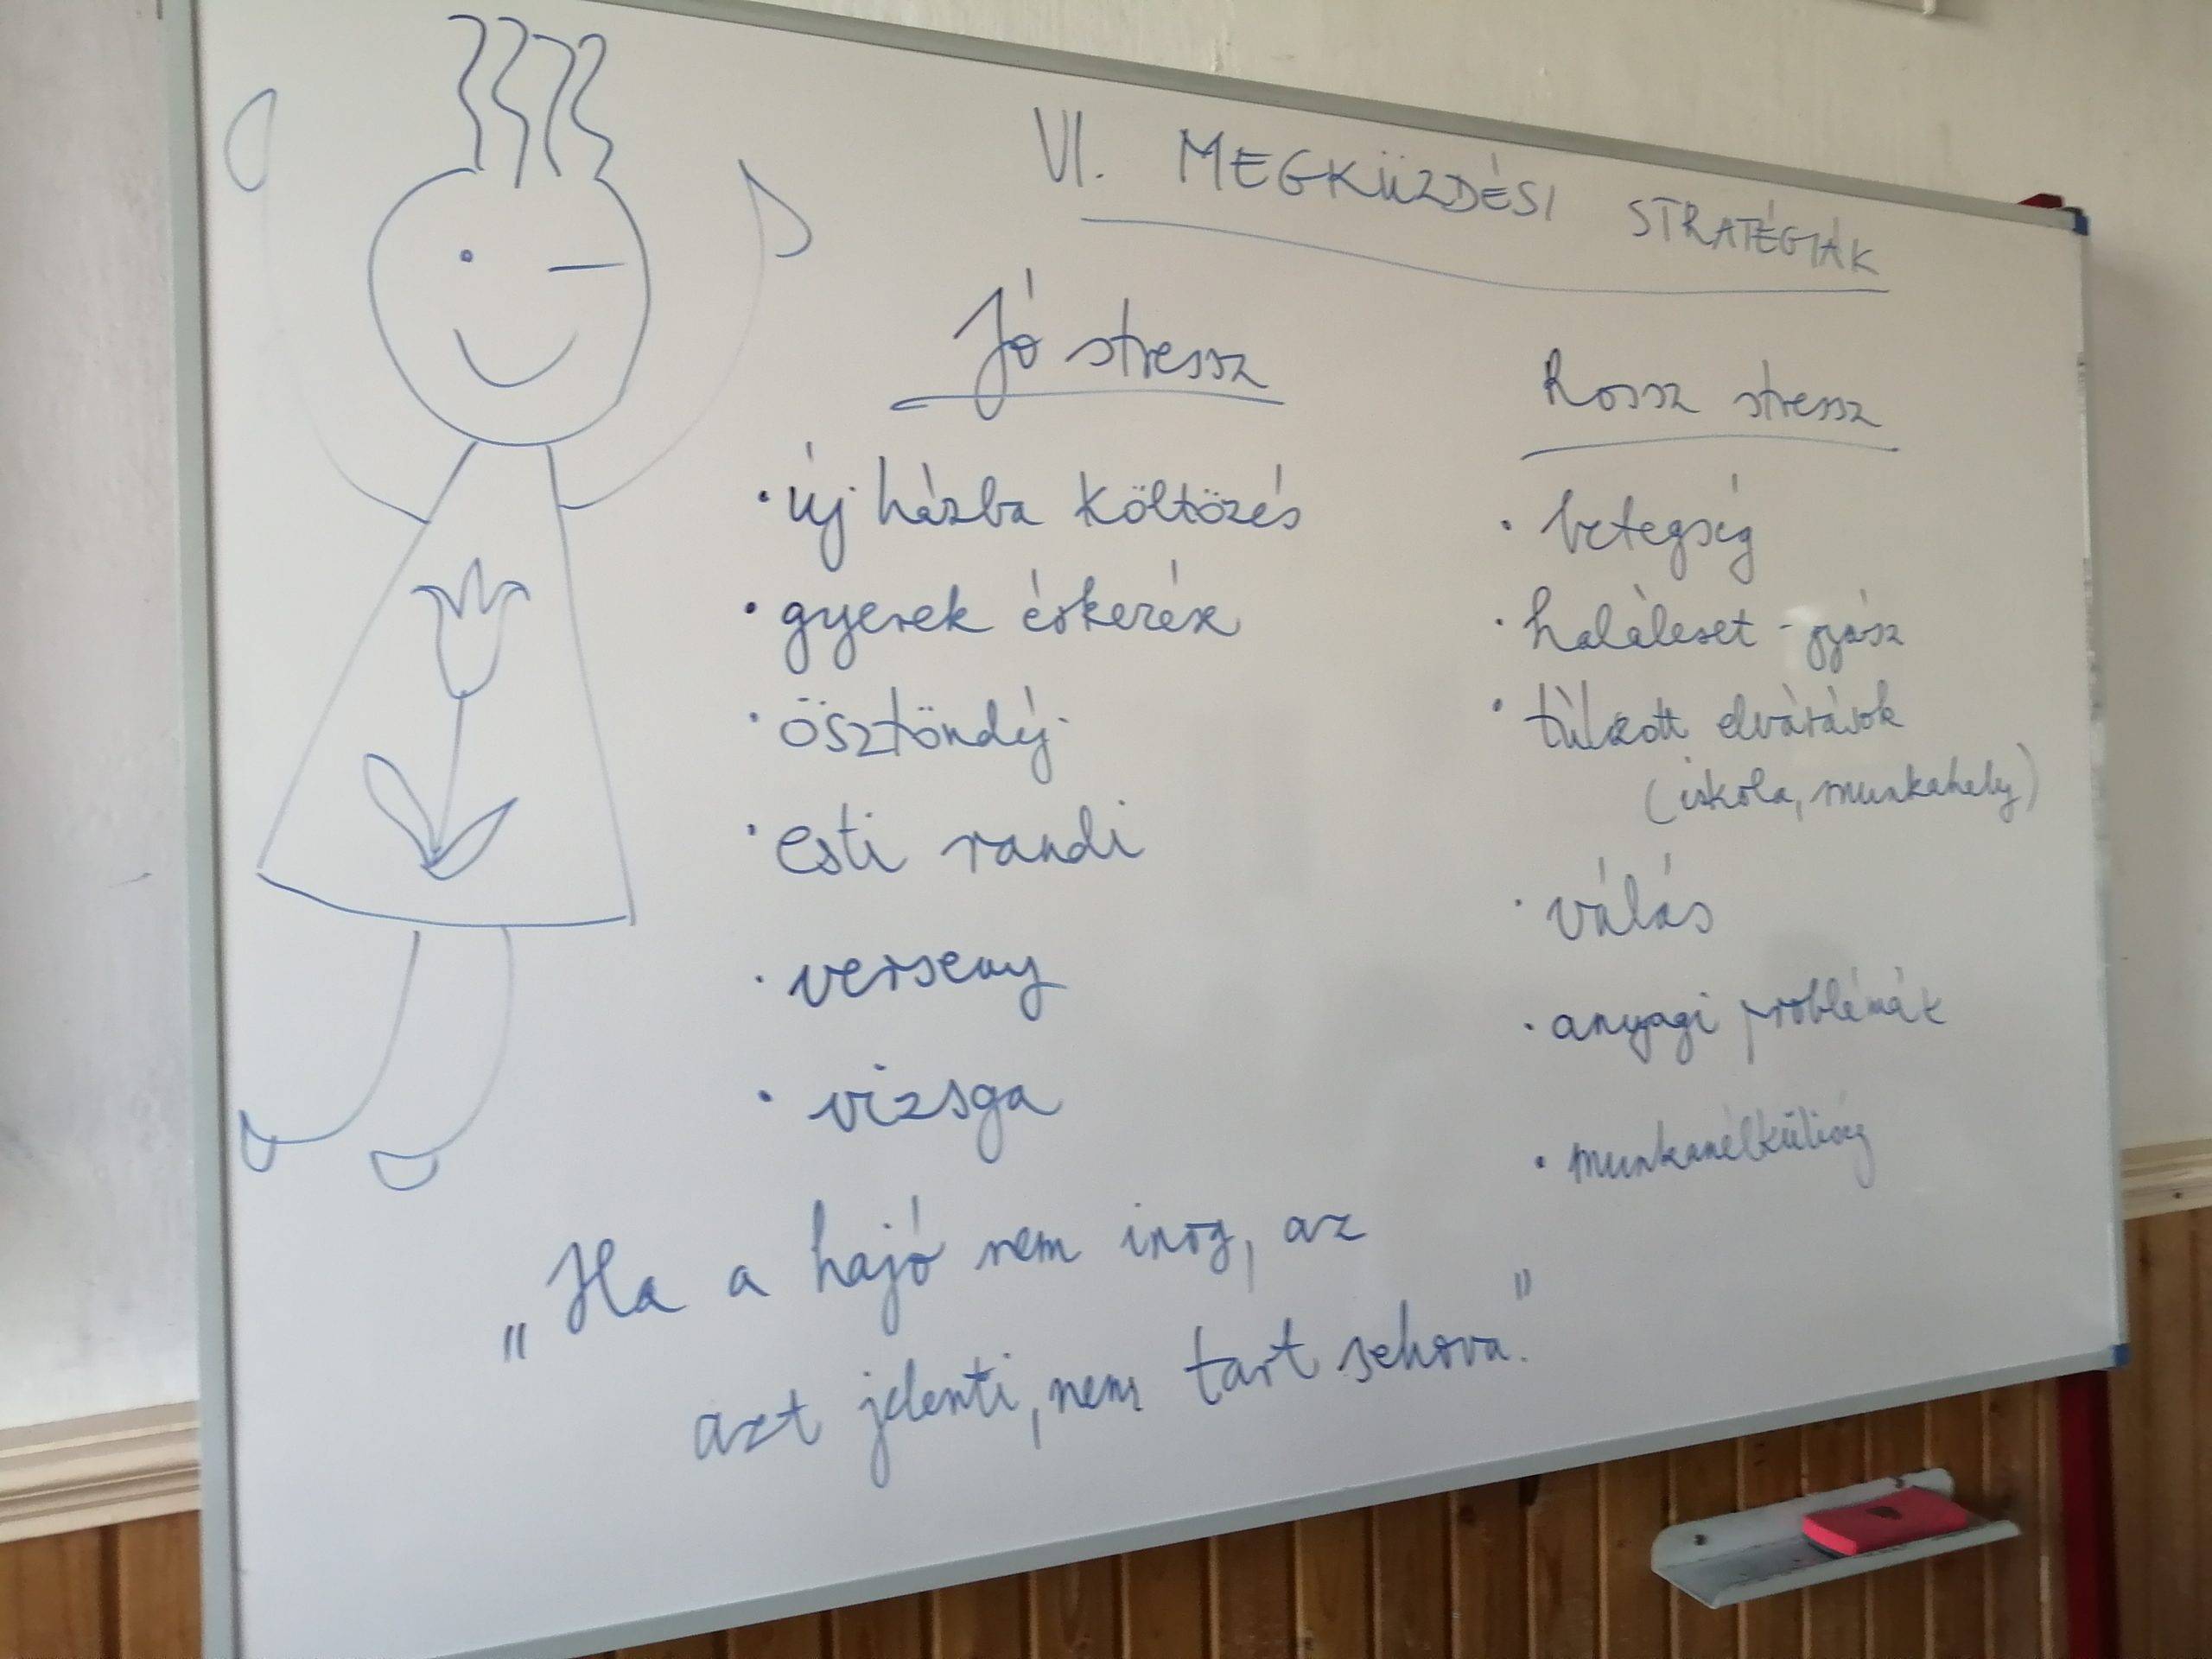 VI. MEGKÜZDÉSI STRATÉGIÁK
Jó stressz
• új házba költözés
• gyerek érkezés
• ösztöndíj
• esti randi
• verseny
• vizsga
Rossz stressz
• betegség
• haláleset - gyász
• túlzott elvárások
(iskola, munkahely)
• válás
• anyagi problémák
• munkanélküliség
„Ha a hajó nem inog, az
azt jelenti, nem tart sehova."